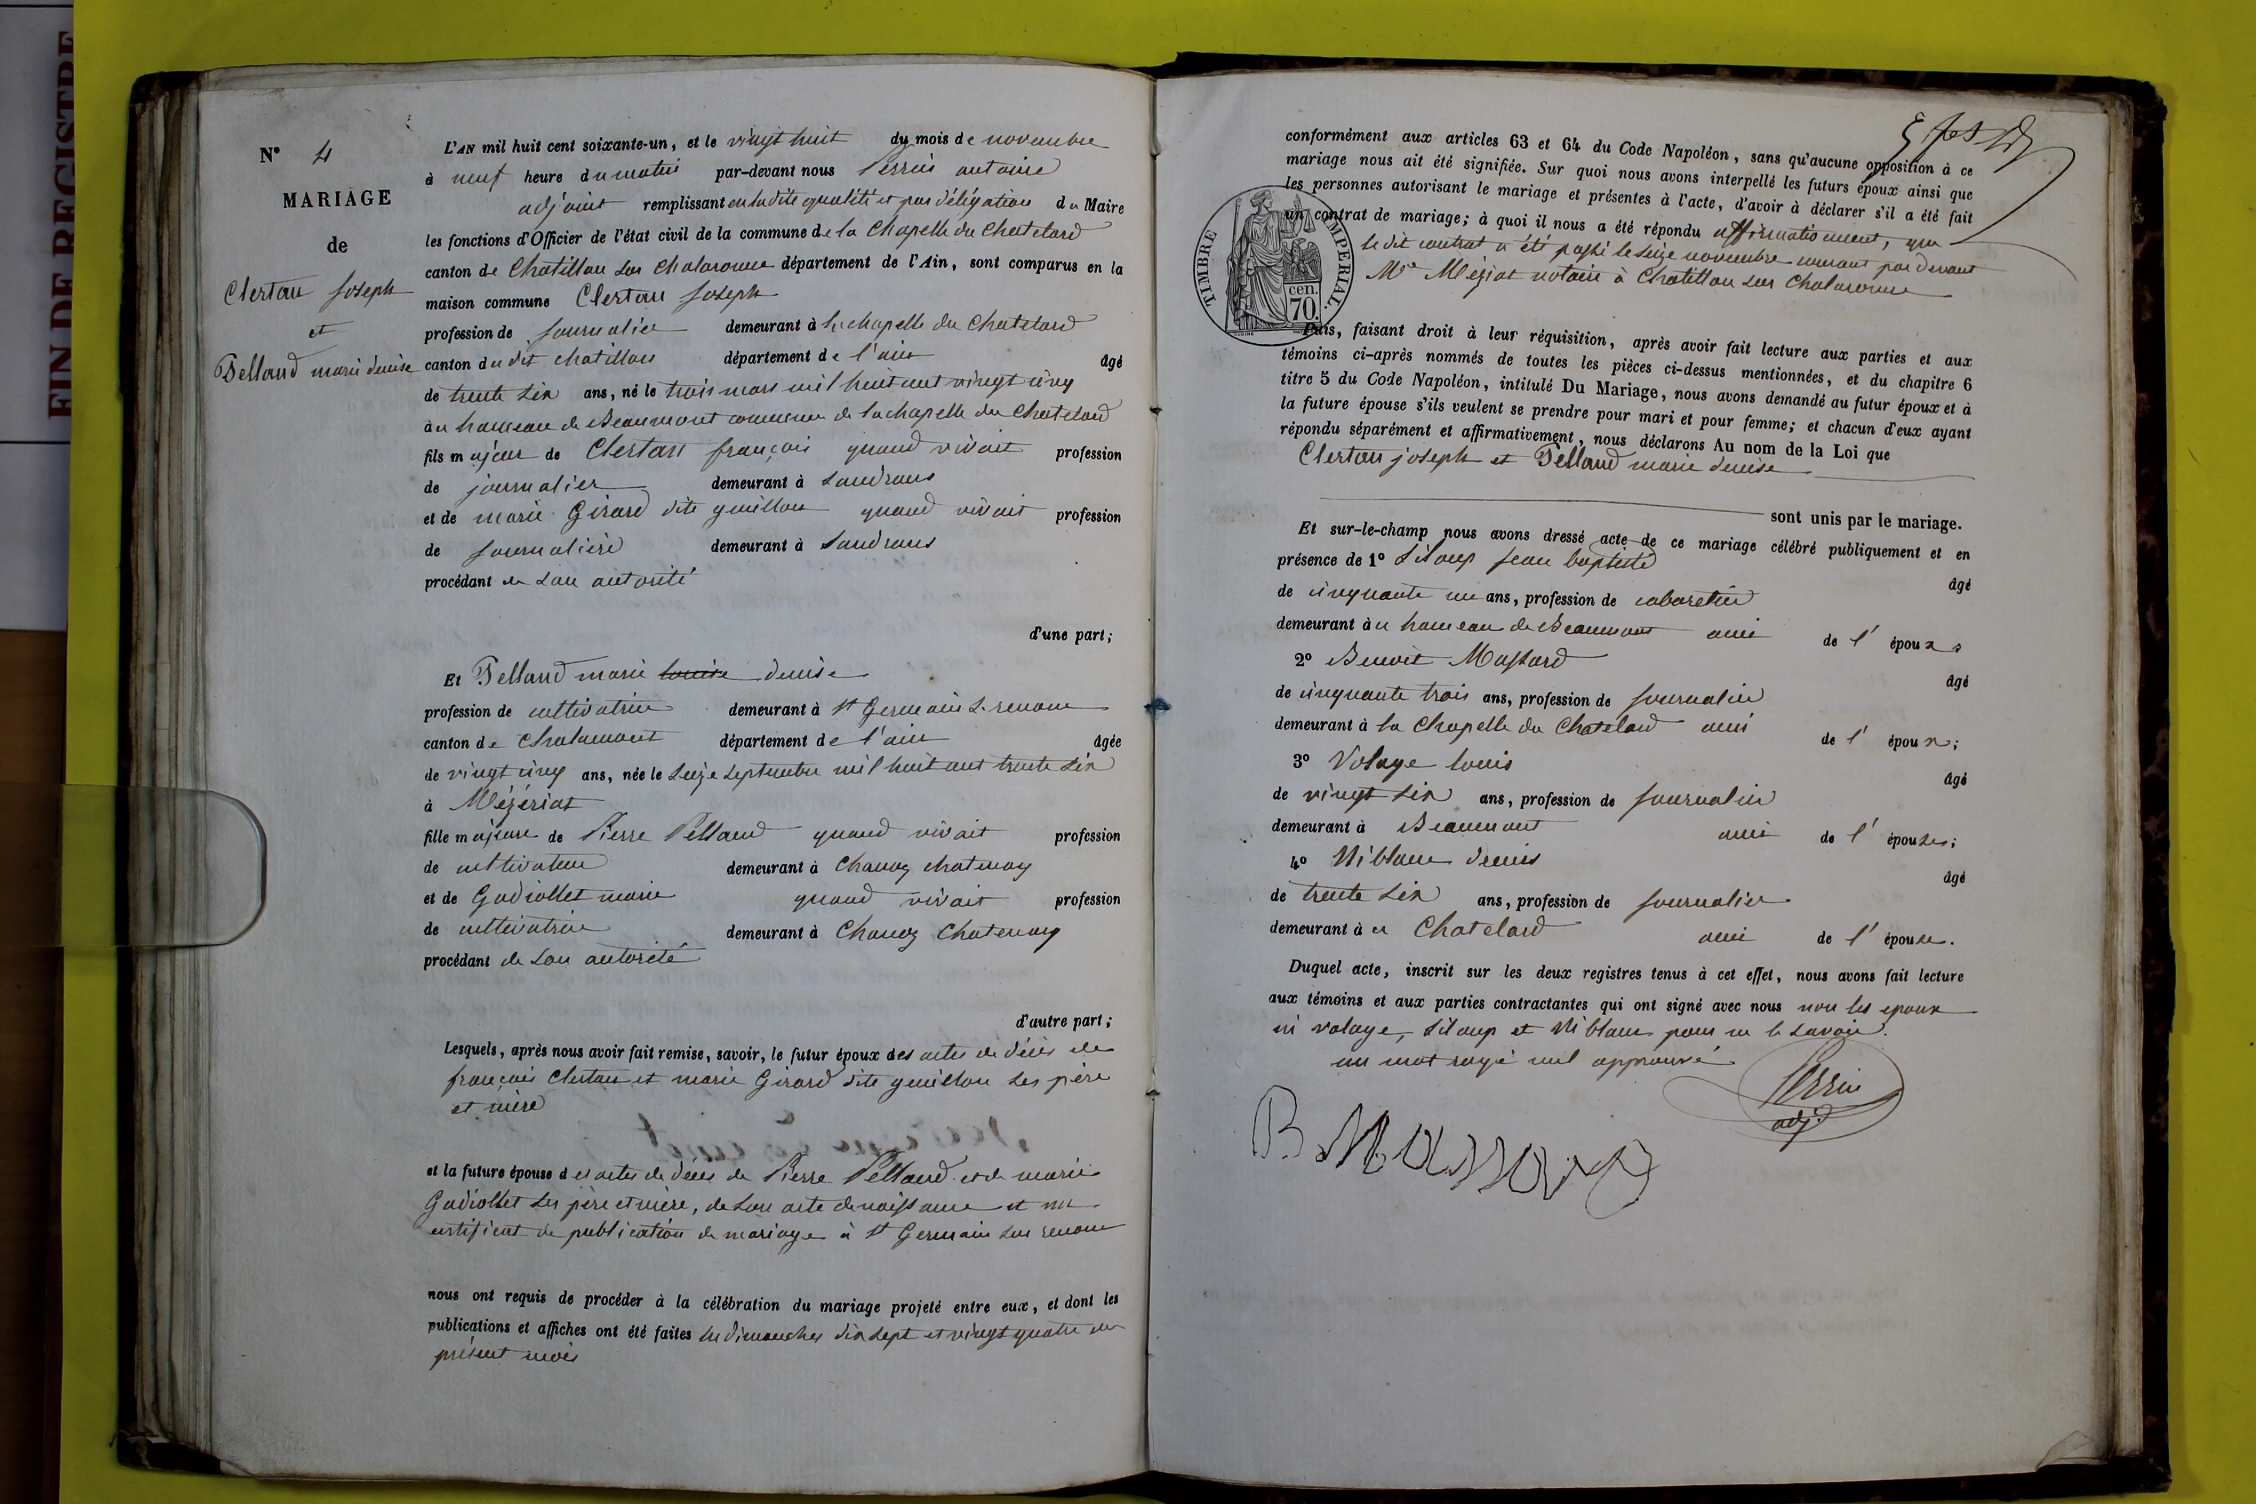 FIN DE REGISTRE
N° 4
MARIAGE
de
Clertan Joseph
et
Pelland marie denise
L'AN mil huit cent soixante-un, et le vingt huit du mois de novembre
à neuf heure du matin par-devant nous Perrin antoine
adjoint remplissant en la dite qualité et par délégation du Maire
les fonctions d'Officier de l'état civil de la commune de la Chapelle du Chatelard
canton de Chatillon sur Chalaronne département de l'Ain, sont comparus en la
maison commune Clertan Joseph
profession de journalier demeurant à la chapelle du Chatelard
canton du dit chatillon département de l'ain âgé
de trente six ans, né le trois mars mil huit cent vingt cinq
à u hameau de Beaumont commune de la chapelle du Chatelard
fils majeur de Clertan françois quand vivait profession
de journalier demeurant à Sandrans
et de marie Girard dite guillon quand vivait profession
de journalière demeurant à Sandrans
procédant de son autorité
d'une part;
Et Pelland marie louise denise
profession de cultivatrice demeurant à St Germain S. renom
canton de Chalamont département de l'ain âgée
de vingt cinq ans, née le seize septembre mil huit cent trente six
à Mézériat
fille majeure de Pierre Pelland quand vivait profession
de cultivateur demeurant à Chanoz chatenay
et de Gadiollet marie quand vivait profession
de cultivatrice demeurant à Chanoz Chatenay
procédant de son autorité
d'autre part;
Lesquels, après nous avoir fait remise, savoir, le futur époux des actes de décès de
françois Clertan et marie Girard dite guillon ses père
et mère
et la future épouse des actes de décès de Pierre Pelland et de marie
Gadiollet ses père et mère, de son acte de naissance et un
certificat de publication de mariage à St Germain sur renom
nous ont requis de procéder à la célébration du mariage projeté entre eux, et dont les
publications et affiches ont été faites les dimanches dix sept et vingt quatre du
présent mois
conformément aux articles 63 et 64 du Code Napoléon, sans qu'aucune opposition à ce
mariage nous ait été signifiée. Sur quoi nous avons interpellé les futurs époux ainsi que
les personnes autorisant le mariage et présentes à l'acte, d'avoir à déclarer s'il a été fait
un contrat de mariage; à quoi il nous a été répondu affirmativement, que
le dit contrat a été passé le seize novembre courant par devant
Me Méziat notaire à Chatillon sur Chalaronne
TIMBRE IMPERIAL.
cen.
70.
Puis, faisant droit à leur réquisition, après avoir fait lecture aux parties et aux
témoins ci-après nommés de toutes les pièces ci-dessus mentionnées, et du chapitre 6
titre 5 du Code Napoléon, intitulé Du Mariage, nous avons demandé au futur époux et à
la future épouse s'ils veulent se prendre pour mari et pour femme; et chacun d'eux ayant
répondu séparément et affirmativement, nous déclarons Au nom de la Loi que
Clertan joseph et Pelland marie denise
sont unis par le mariage.
Et sur-le-champ nous avons dressé acte de ce mariage célébré publiquement et en
présence de 1° Siloup Jean baptiste âgé
de cinquante un ans, profession de cabaretier
demeurant à u hameau de Beaumont ami de l' époux
2° Benoit Massard âgé
de cinquante trois ans, profession de journalier
demeurant à la Chapelle du Chatelard ami de l' époux;
3° Volage louis âgé
de vingt six ans, profession de journalier
demeurant à Beaumont ami de l' épouse;
4° Niblanc denis âgé
de trente six ans, profession de journalier
demeurant à u Chatelard ami de l' épouse.
Duquel acte, inscrit sur les deux registres tenus à cet effet, nous avons fait lecture
aux témoins et aux parties contractantes qui ont signé avec nous non les epoux
ni volage, Siloup et Niblanc pour ne le savoir.
un mot rayé nul approuvé
Perrin
adjt
B Massard